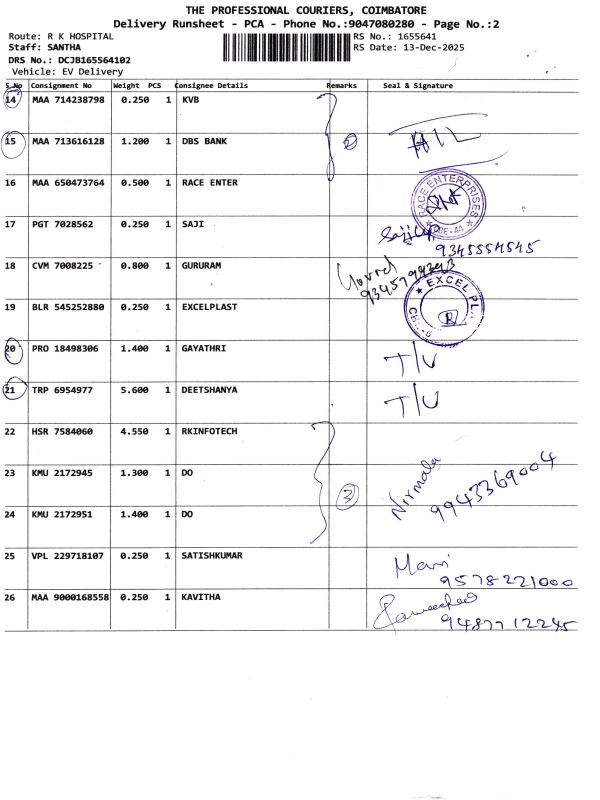 THE PROFESSIONAL COURIERS, COIMBATORE
Delivery Runsheet - PCA - Phone No.:9047080280 - Page No.:2
Route: R K HOSPITAL
RS No.: 1655641
Staff: SANTHA
RS Date: 13-Dec-2025
DRS No.: DCJB165564102
Vehicle: EV Delivery
S.No Consignment No Weight PCS Consignee Details Remarks Seal & Signature
14 MAA 714238798 0.250 1 KVB
15 MAA 713616128 1.200 1 DBS BANK
16 MAA 650473764 0.500 1 RACE ENTER
RACE ENTERPRISES
17 PGT 7028562 0.250 1 SAJI
9345554545
18 CVM 7008225 0.800 1 GURURAM
19 BLR 545252880 0.250 1 EXCELPLAST
EXCEL PL
20 PRO 18498306 1.400 1 GAYATHRI T/U
21 TRP 6954977 5.600 1 DEETSHANYA T/U
22 HSR 7584060 4.550 1 RKINFOTECH
23 KMU 2172945 1.300 1 DO
3 Nirmala 9943369004
24 KMU 2172951 1.400 1 DO
25 VPL 229718107 0.250 1 SATISHKUMAR
Mani
9578221000
26 MAA 9000168558 0.250 1 KAVITHA
9487712245